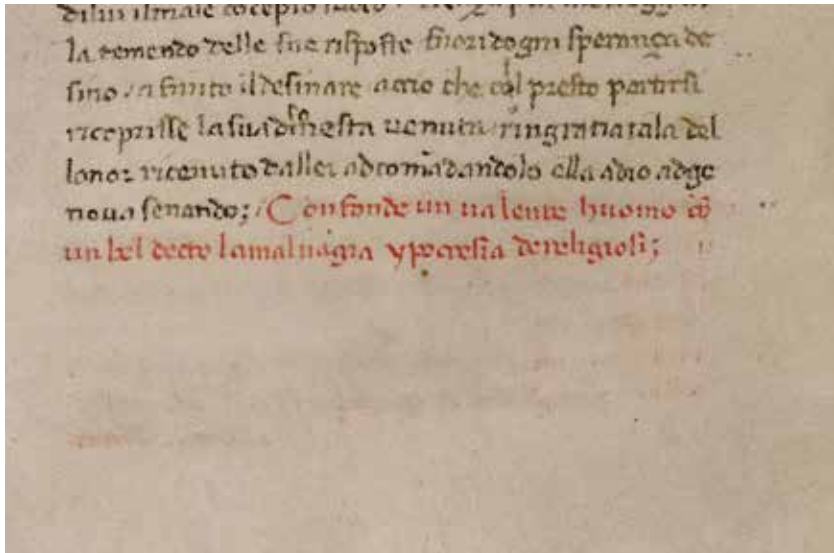 la temendo delle sue risposte fuori dogni sperança de
sino. a finito il desinare accio che col presto partirsi
ricoprisse la sua dishonesta venuta ringratiatala del
lonor ricevuto dallei adcomādandolo ella adio adge
nova senando; Confonde un valente huomo cō
un bel decto lamalvagia ypocresia dereligiosi;